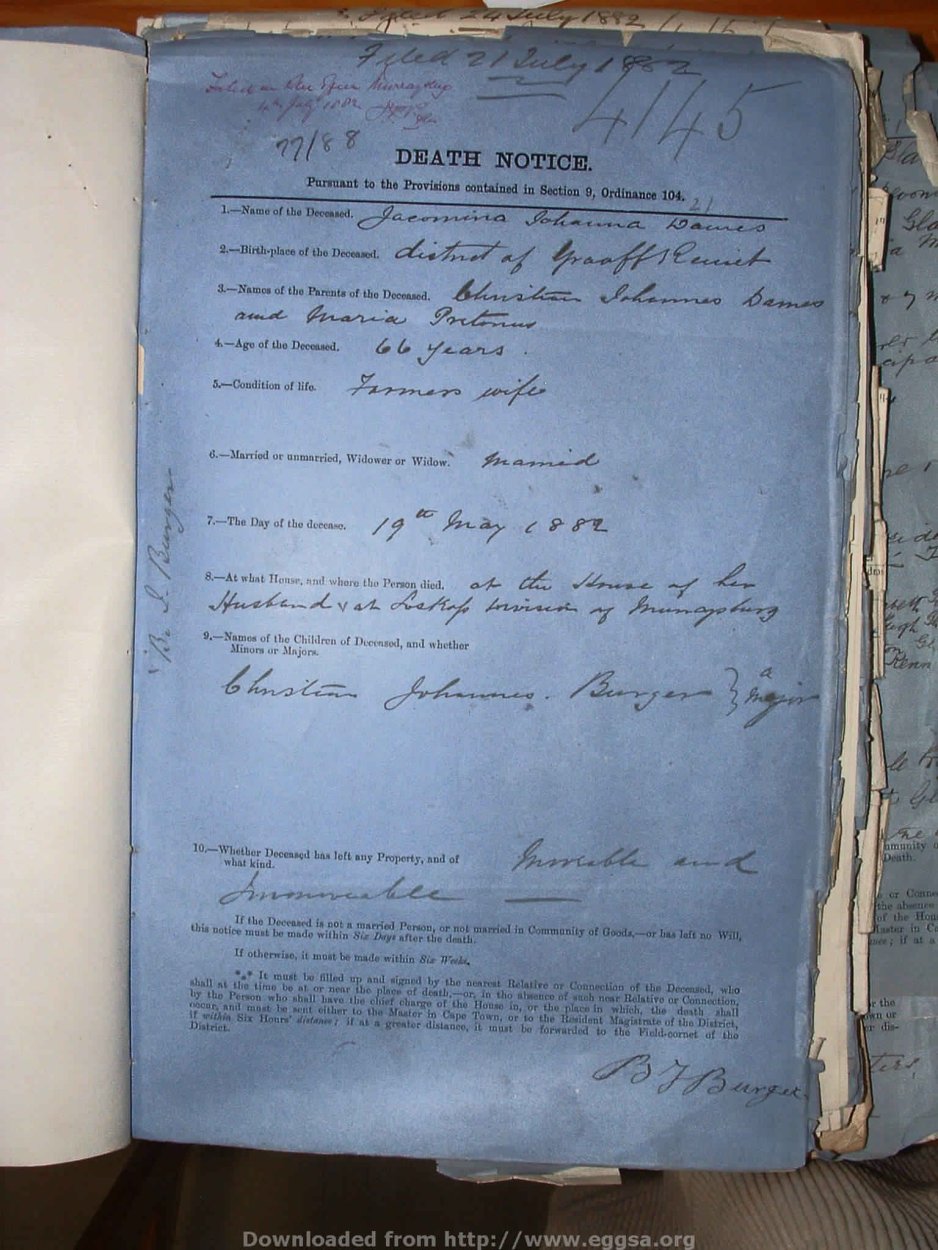 Filed 24 July 1882
Filed 21 July 1882
4145
77/88
DEATH NOTICE.
Pursuant to the Provisions contained in Section 9, Ordinance 104.
21
1.—Name of the Deceased. Jacomina Johanna Dames
2.—Birth-place of the Deceased. district of Graaff Reinet
3.—Names of the Parents of the Deceased. Christian Johannes Dames
and Maria Pretorius
4.—Age of the Deceased. 66 years.
5.—Condition of life. Farmers wife
6.—Married or unmarried, Widower or Widow. Married
7.—The Day of the decease. 19th May 1882
8.—At what House, and where the Person died. at the House of her
Husband at division of Murraysburg
9.—Names of the Children of Deceased, and whether
Minors or Majors.
Christian Johannes. Burger } a Major
10.—Whether Deceased has left any Property, and of
what kind. Moveable and
Immoveable —
If the Deceased is not a married Person, or not married in Community of Goods,—or has left no Will,
this notice must be made within Six Days after the death.
If otherwise, it must be made within Six Weeks.
*** It must be filled up and signed by the nearest Relative or Connection of the Deceased, who
shall at the time be at or near the place of death,—or, in the absence of such near Relative or Connection,
by the Person who shall have the chief charge of the House in, or the place in which, the death shall
occur, and must be sent either to the Master in Cape Town, or to the Resident Magistrate of the District,
if within Six Hours' distance; if at a greater distance, it must be forwarded to the Field-cornet of the
District.
B J Burger
Burger
Downloaded from http://www.eggsa.org